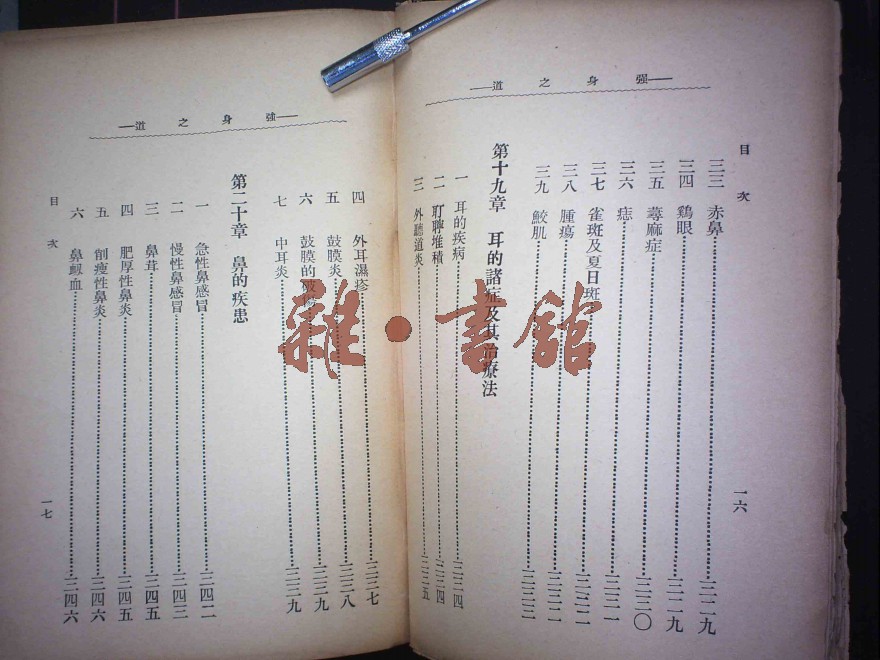 強身之道
目次
三三 赤鼻 二二九
三四 鷄眼 二二九
三五 蕁麻症 二三〇
三六 痣 二三一
三七 雀斑及夏日斑 二三一
三八 腫瘍 二三二
三九 鮫肌 二三三
第十九章 耳的諸症及其治療法
一 耳的疾病 二三四
二 耵聹堆積 二三四
三 外聽道炎 二三五
一六
強身之道
四 外耳濕疹 二三七
五 鼓膜炎 二三八
六 鼓膜的破 二三九
七 中耳炎 二三九
第二十章 鼻的疾患
一 急性鼻感冒 二四二
二 慢性鼻感冒 二四三
三 鼻茸 二四五
四 肥厚性鼻炎 二四五
五 削瘦性鼻炎 二四六
六 鼻衄血 二四六
目次
一七
雜·書館